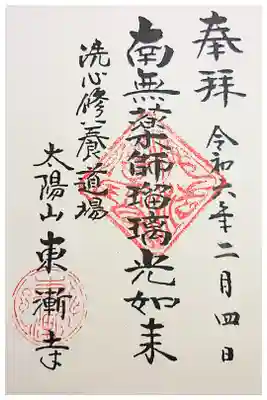 奉拝
令和六年二月四日
南無薬師瑠璃光如来
洗心修養道場
太陽山東漸寺